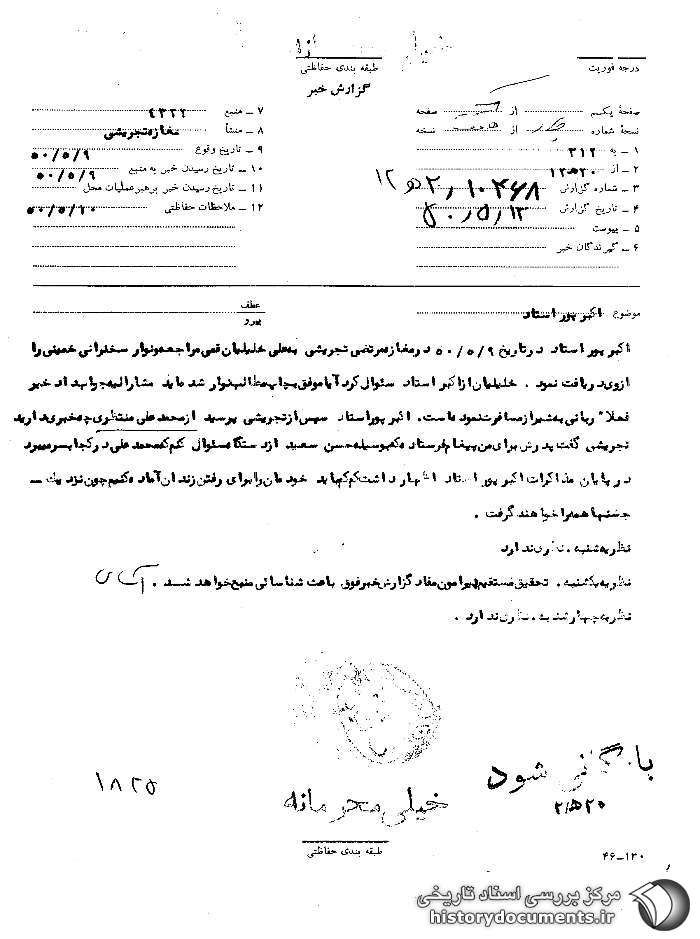 خیلی
درجه فوریت
طبقه بندی حفاظتی
گزارش خبر
صفحهٔ یکم از صفحه
نسخهٔ شماره از نسخه
۱ – به ۳۱۲
۲ – از ۲۰ه۱۲
۳ – شماره گزارش ۱۰۴۶۸ / ۲ه۱۲
۴ – تاریخ گزارش ۵۰/۵/۱۳
۵ – پیوست
۶ – گیرندگان خبر
۷ – منبع ۴۳۲۲
۸ – منشأ مغازه تجریشی
۹ – تاریخ وقوع ۵۰/۵/۹
۱۰ – تاریخ رسیدن خبر به منبع ۵۰/۵/۹
۱۱ – تاریخ رسیدن خبر برهبر عملیات محل
۱۲ – ملاحظات حفاظتی ۵۰/۵/۱۰
موضوع اکبر پور استاد
عطف
پیرو
اکبر پور استاد در تاریخ ۵۰/۵/۹ در مغازه مرتضی تجریشی به علی خلیلیان قمی مراجعه و نوار سخنرانی خمینی را
از وی دریافت نمود. خلیلیان از اکبر استاد سئوال کرد آیا موفق بچاپ مطالب نوار شده اید مشارالیه جواب داد خیر
فعلا" ربانی به شیراز مسافرت نموده است. اکبر پور استاد سپس از تجریشی پرسید از محمد علی منتظری چه خبری دارید
تجریشی گفت پدرش برای من پیغام فرستاده که بوسیله حسن سعید از دستگاه سئوال کنم که محمد علی در کجا بسر میبرد
در پایان مذاکرات اکبر پور استاد اظهار داشت کم کم باید خودمان را برای رفتن زندان آماده کنیم چون نزدیک –
جشنها همه را خواهند گرفت.
نظریه شنبه. نظری ندارد
نظریه یکشنبه. تحقیق مستقیم پیرامون مفاد گزارش خبر فوق باعث شناسائی منبع خواهد شد.
نظریه چهارشنبه. نظری ندارد.
بایگانی شود
۲۰ه۲
۱۸۲۵
خیلی محرمانه
طبقه بندی حفاظتی
۴۶–۱۳۰
مرکز بررسی اسناد تاریخی
historydocuments.ir